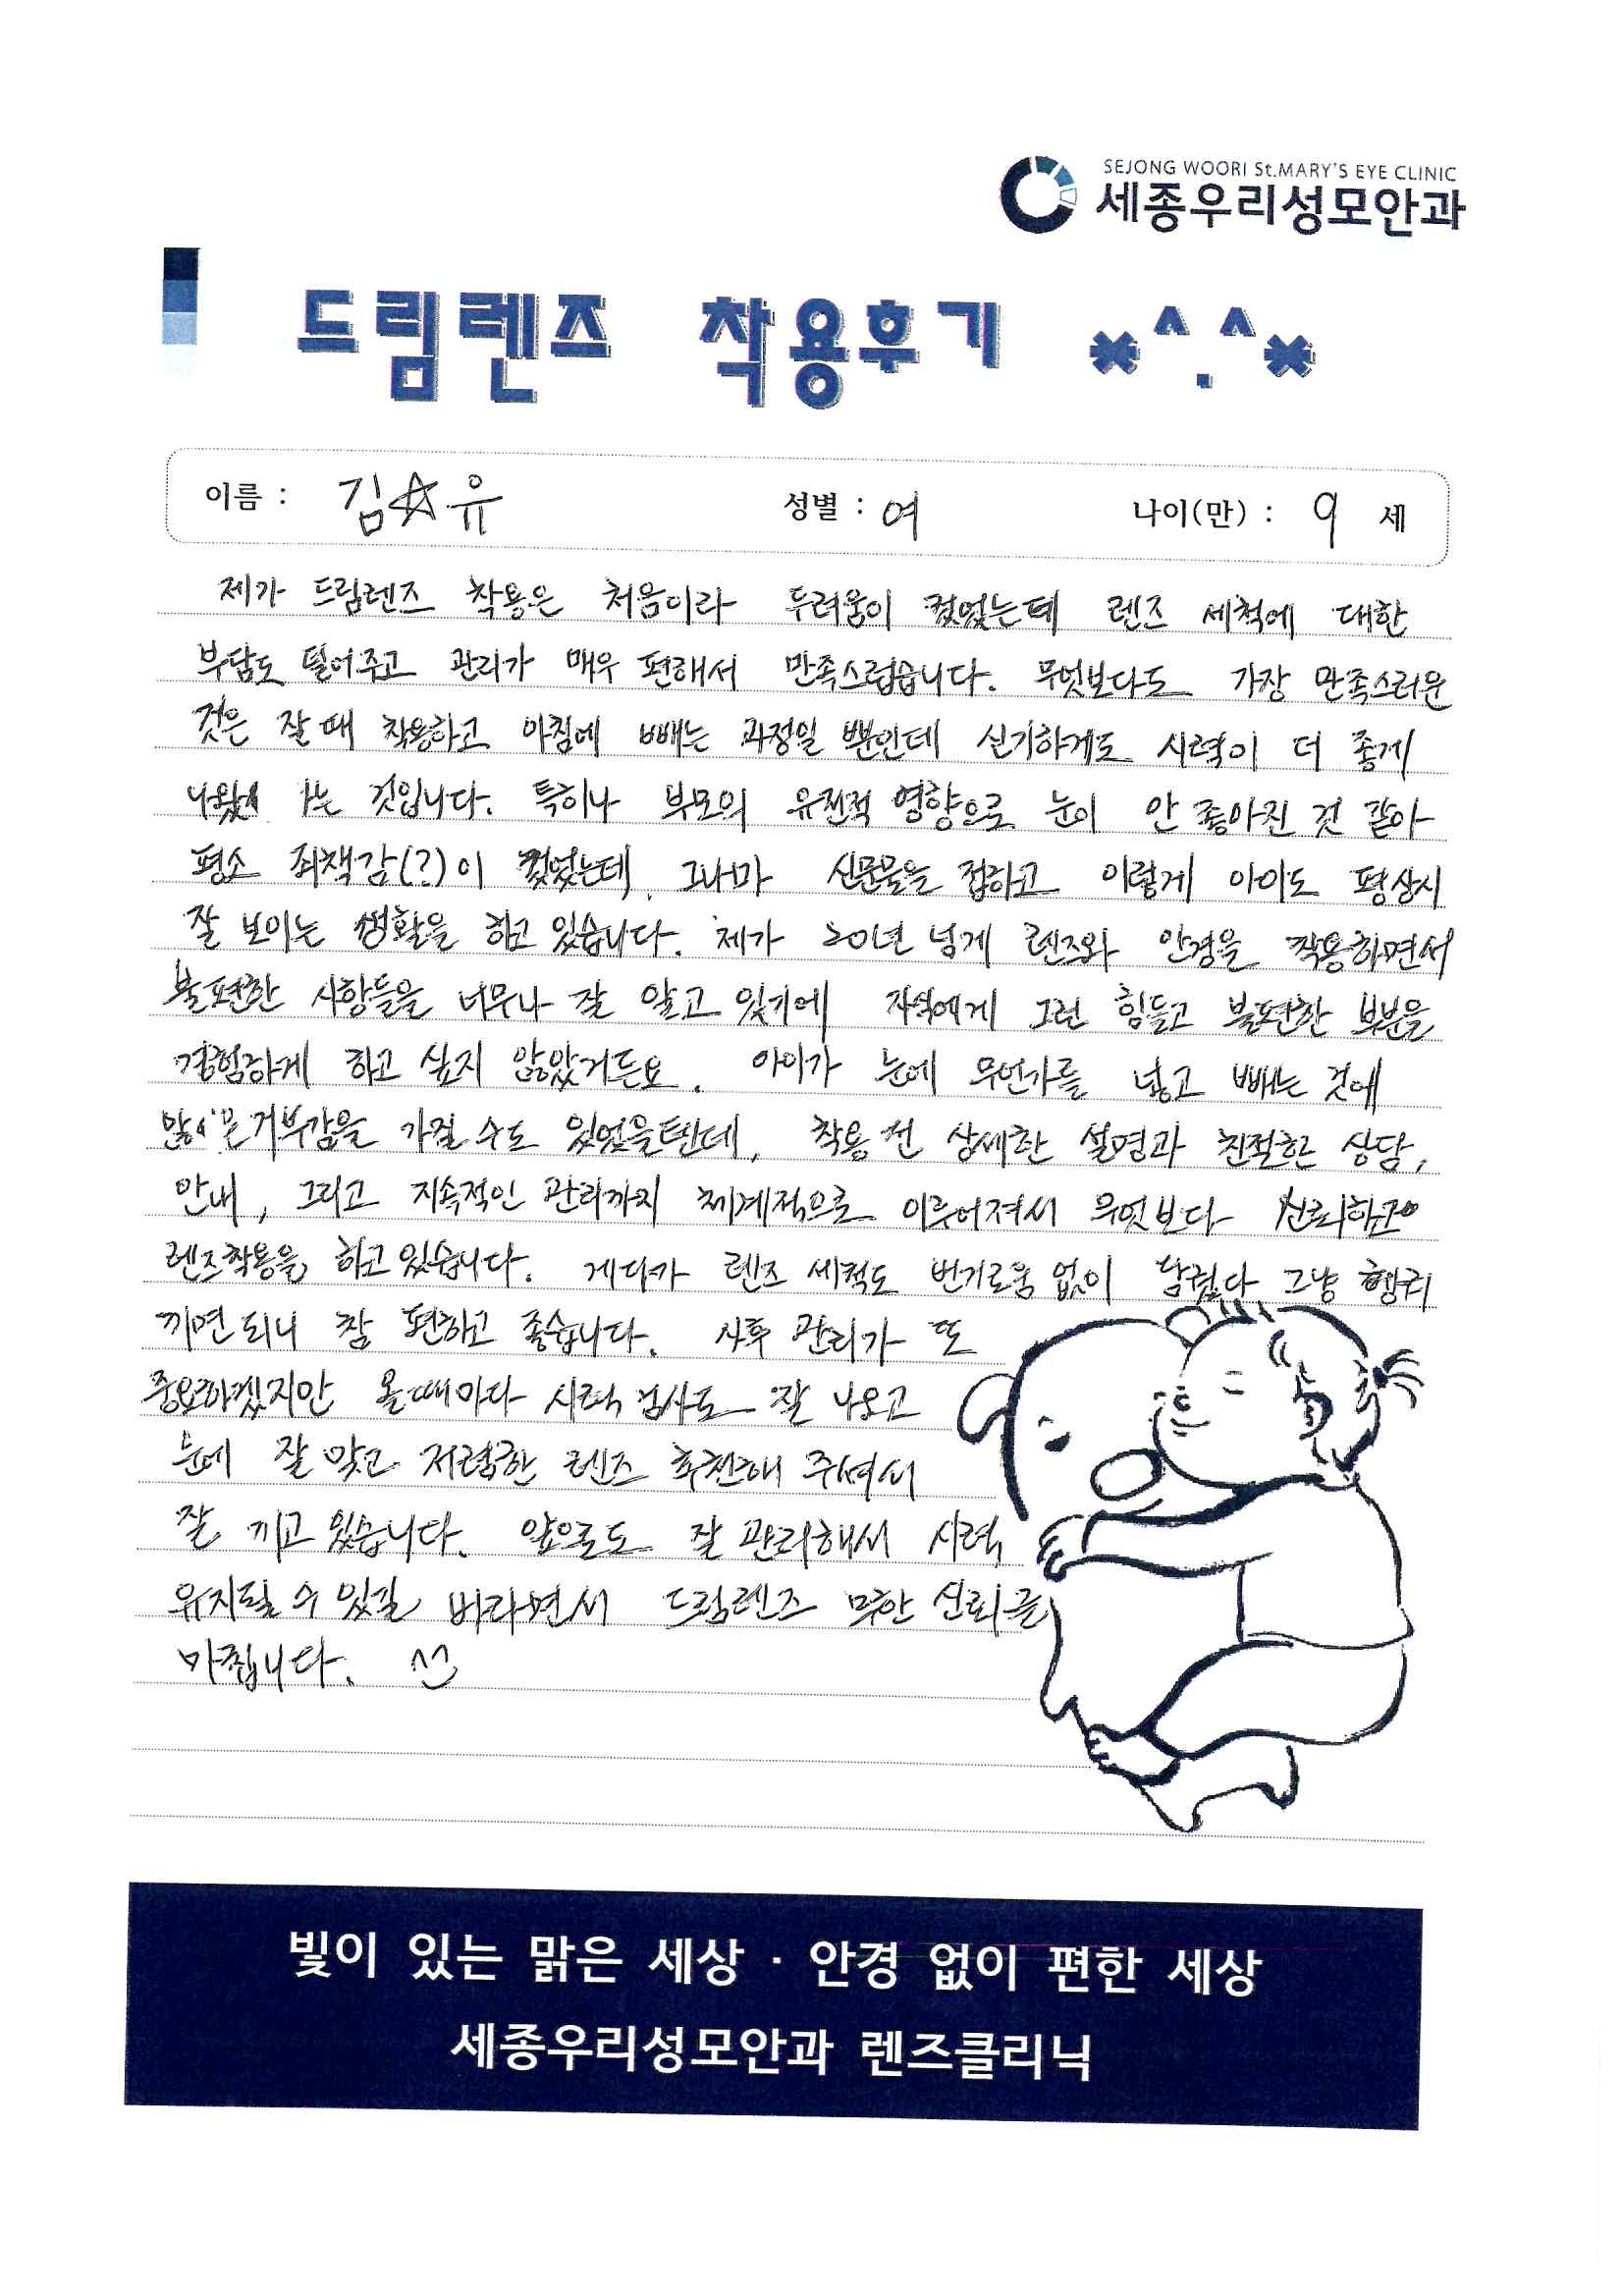 SEJONG WOORI St.MARY'S EYE CLINIC
세종우리성모안과
드림렌즈 착용후기 *^.^*
이름 : 김☆유 성별 : 여 나이(만) : 9 세
제가 드림렌즈 착용은 처음이라 두려움이 컸었는데 렌즈 세척에 대한
부담도 덜어주고 관리가 매우 편해서 만족스럽습니다. 무엇보다도 가장 만족스러운
것은 잘 때 착용하고 아침에 빼는 과정일 뿐인데 신기하게도 시력이 더 좋게
나왔다는 것입니다. 특히나 부모의 유전적 영향으로 눈이 안 좋아진 것 같아
평소 죄책감(?)이 컸었는데, 그나마 신문물을 접하고 이렇게 아이도 평상시
잘 보이는 생활을 하고 있습니다. 제가 20년 넘게 렌즈와 안경을 착용하면서
불편한 사항들을 너무나 잘 알고 있기에 자식에게 그런 힘들고 불편한 부분을
경험하게 하고 싶지 않았거든요. 아이가 눈에 무언가를 넣고 빼는 것에
많은 거부감을 가질 수도 있었을텐데, 착용 전 상세한 설명과 친절한 상담,
안내, 그리고 지속적인 관리까지 체계적으로 이루어져서 무엇보다 신뢰하고
렌즈착용을 하고 있습니다. 게다가 렌즈 세척도 번거로움 없이 담궜다 그냥 헹궈
끼면 되니 참 편하고 좋습니다. 사후 관리가 또
중요하겠지만 올 때마다 시력 검사도 잘 나오고
눈에 잘 맞고 저렴한 렌즈 추천해 주셔서
잘 끼고 있습니다. 앞으로도 잘 관리해서 시력
유지될 수 있길 바라면서 드림렌즈 무한 신뢰글
마칩니다. ^^
빛이 있는 맑은 세상 · 안경 없이 편한 세상
세종우리성모안과 렌즈클리닉